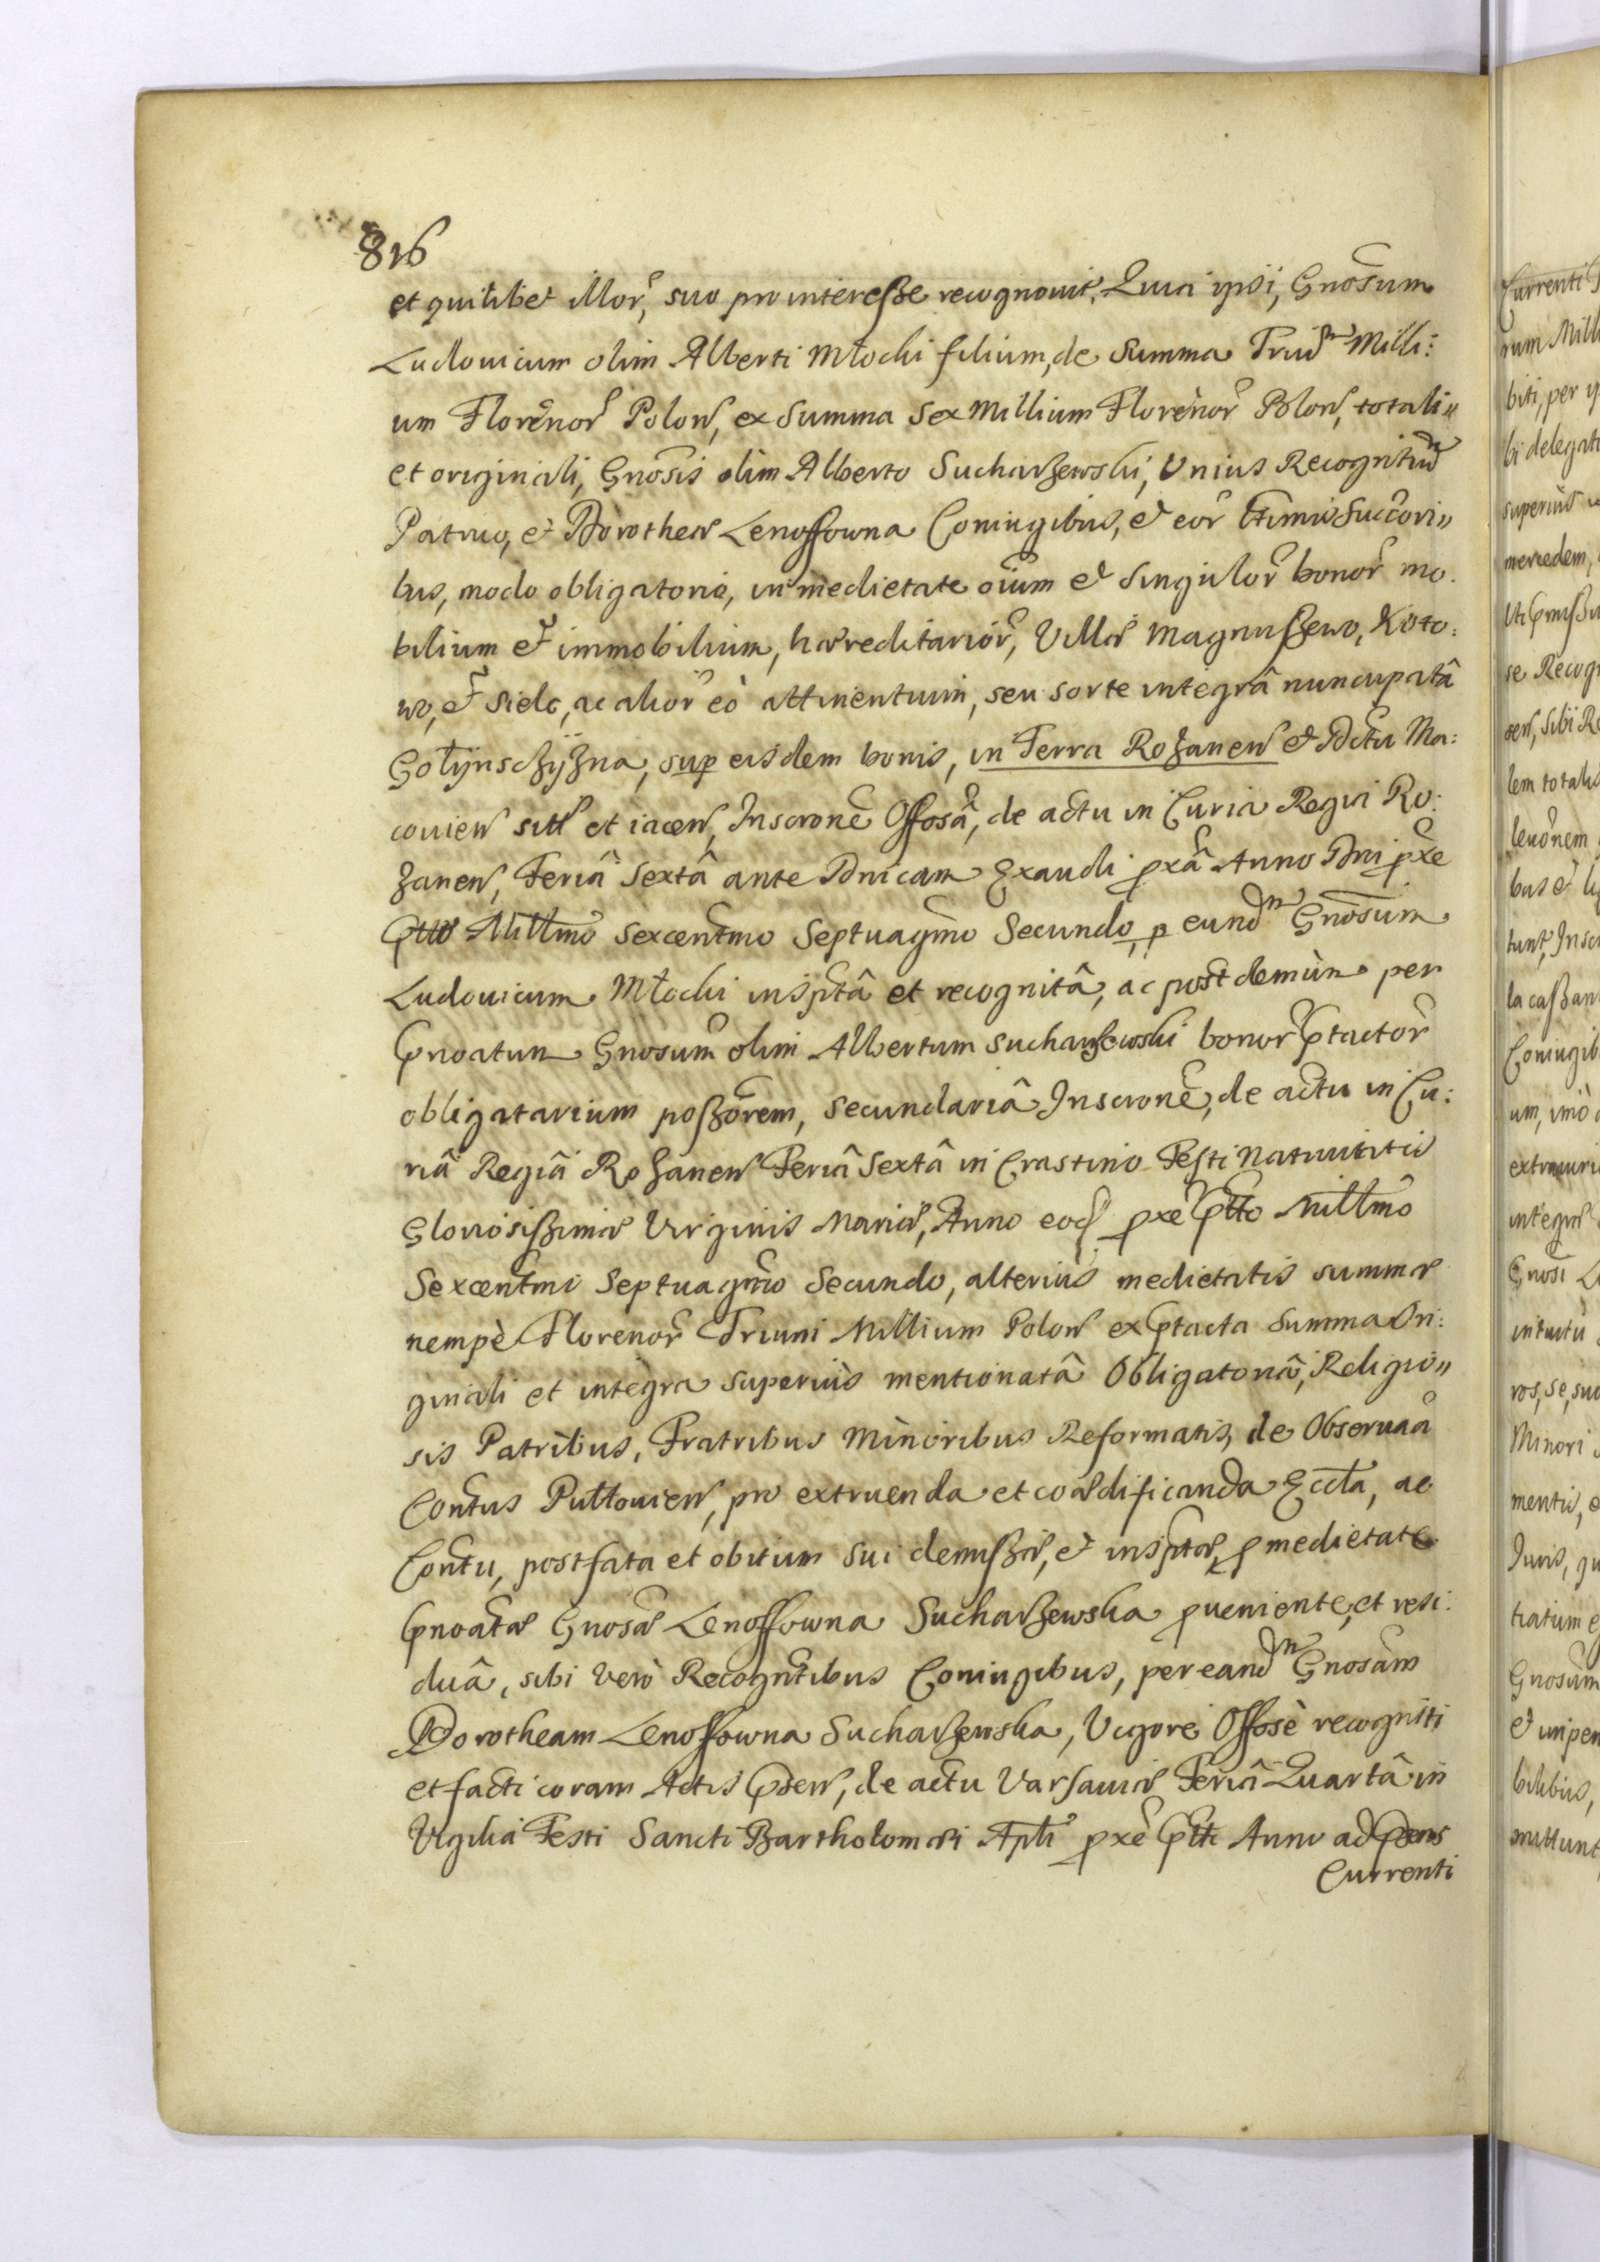 816
et quilibet illor, suo pro interesse recognovit, Quia ipsi, Gnosum
Ludovicum olim Alberti Młocki filium, de Summa Trium Milli:
um Florenor Polon, ex Summa Sex Millium Florenor Polon, totali
et originali, Gnosis olim Alberto Sucharzewski, Unius Recognitium
Patruo, et Dorotheæ Lenossowna Coniugibus, et eor ltimis Succori
bus, modo obligatorio, in medietate oium et singulor bonor mo
bilium et immobilium, hæreditarior, Villæ Magnuszewo, Koto:
wo, et Sielc, ac alior eò attinentium, seu sorte integrâ nuncupatâ
Gołÿnsczÿzna, sup eisdem bonis, in Terra Rozanen et Dctu Ma:
covien sitt et iacen, Inscrone Offosâ, de actu in Curia Regia Ro:
zanen, Feriâ Sextâ ante Dnicam Exaudi pxâ Anno Dni pxe
Ptto Millmo Sexcentmo Septuagmo Secundo, p eundm Gnosum
Ludovicum Młocki insptâ et recognitâ, ac post demùm per
Pnoatum Gnosum olim Albertum Sucharzewski bonor Ptactor
obligatarium poszorem, secundariâ Inscrone, de actu in Cu:
riâ Regiâ Rozanen Feriâ Sextâ in Crastino Festi Nativitatis
Gloriosissimæ Virginis Mariæ, Anno eod pxe Ptto Millmo
Sexcentmi Septuagmo Secundo, alterius medietatis summæ
nempè Florenor Trium Millium Polon ex Ptacta Summa Ori:
ginali et integra superiùs mentionatâ Obligatoriâ, Religio
sis Patribus, Fratribus Minoribus Reformatis, de Observaa
Contus Pułtovien, pro extruenda et coædificanda Eccla, ac
Contu, post fata et obitum sui demissæ, et insptæ, p medietate
Pnoatæ Gnosæ Lenossowna Sucharzewska pveniente, et resi:
duâ, sibi verò Recogntibus Coniugibus, per eandm Gnosam
Dorotheam Lenossowna Sucharzewska, Vigore Offosè recogniti
et facti coram Actis Psen, de actu Varsaviæ Feriâ Quartâ in
Vigilia Festi Sancti Bartholomæi Apli pxe Ptti Anno ad Psens
Currenti